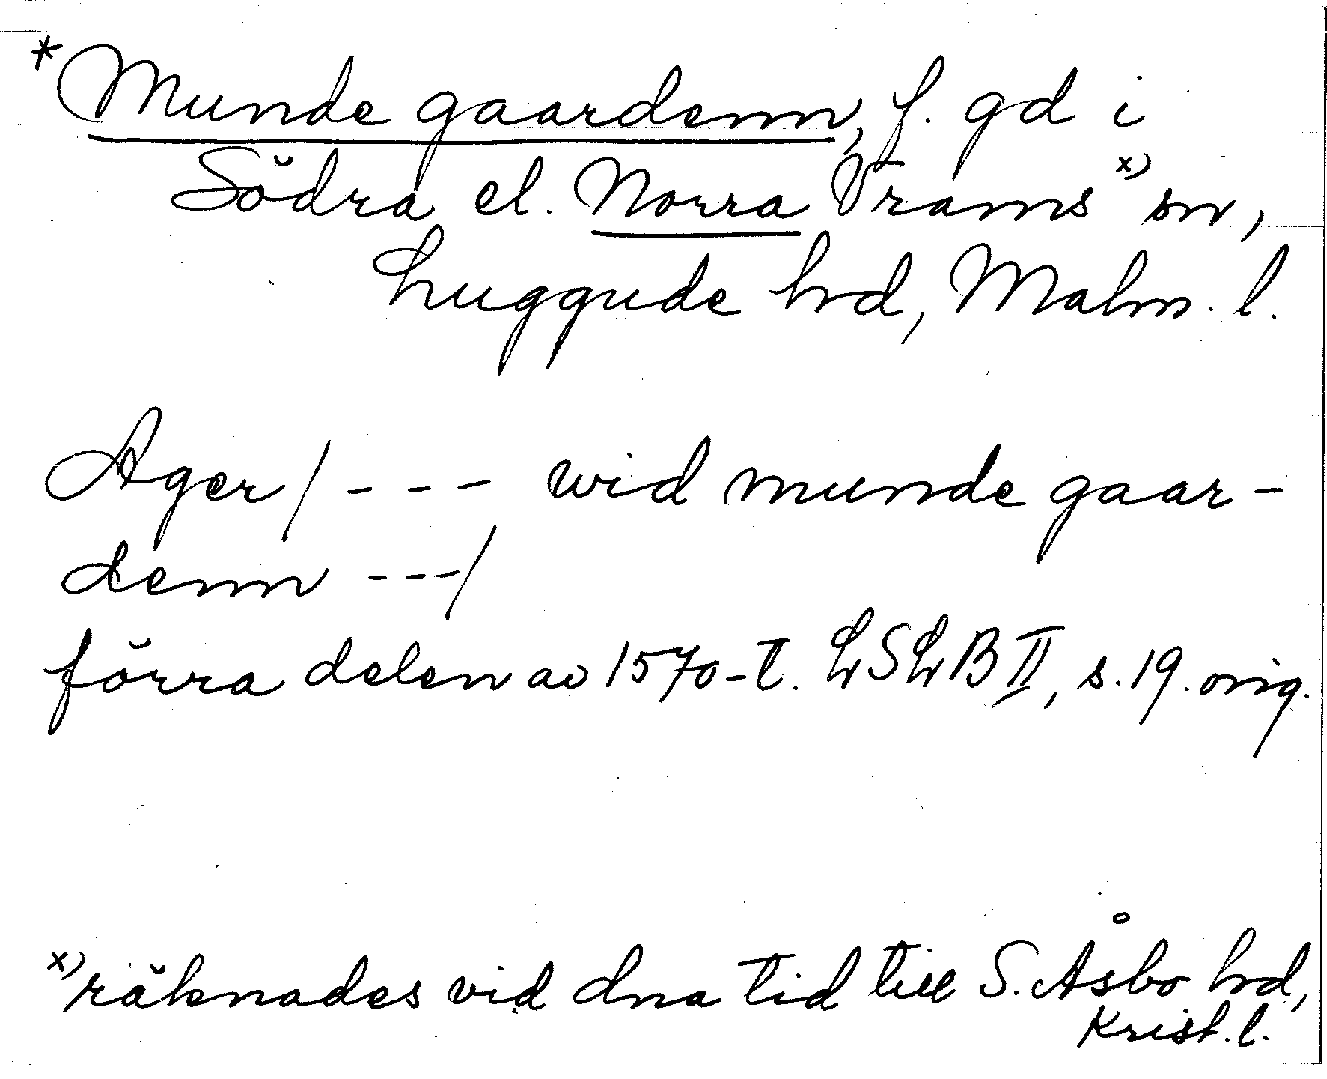 *Munde gaardenn, f. gd i
Södra el. Norra Vrams x) sn,
Luggude hd, Malm. l.
Ager / --- wid munde gaar-
denn ---/
förra delen av 1570-t. LSLB II, s. 19. orig.
x) räknades vid dna tid till S. Åsbo hd,
Krist. l.